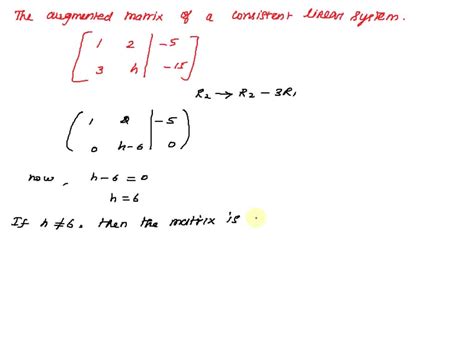 The augmented matrix of a consistent linear system.
[ 1 2 | -5
3 h | -15 ]
R₂ → R₂ - 3R₁
( 1 2 | -5
0 h-6 | 0 )
now, h-6 = 0
h = 6
If h ≠ 6. then the matrix is